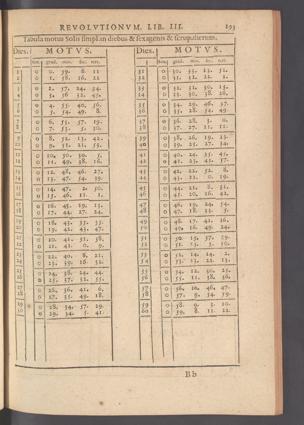 REVOLVTIONVM. LIB. III.
Tabula motus Solis simpl. in diebus & sexagenis & scrupulorum.
Dies. MOTVS. Dies. MOTVS.
sex. grad. min. sec. tert. sex. grad. min. sec. tert.
1 0 0. 59. 8. 11 31 0 30. 33. 13. 52.
2 0 1. 58. 16. 22 32 0 31. 32. 22. 3.
3 0 2. 57. 24. 34. 33 0 32. 31. 30. 15.
4 0 3. 56. 32. 45. 34 0 33. 30. 38. 26.
5 0 4. 55. 40. 56. 35 0 34. 29. 46. 37.
6 0 5. 54. 49. 8. 36 0 35. 28. 54. 49.
7 0 6. 53. 57. 19. 37 0 36. 28. 3. 0.
8 0 7. 53. 5. 30. 38 0 37. 27. 11. 11.
9 0 8. 52. 13. 42. 39 0 38. 26. 19. 23.
10 0 9. 51. 21. 53. 40 0 39. 25. 27. 34.
11 0 10. 50. 30. 5. 41 0 40. 24. 35. 45.
12 0 11. 49. 38. 16. 42 0 41. 23. 43. 57.
13 0 12. 48. 46. 27. 43 0 42. 22. 52. 8.
14 0 13. 47. 54. 39. 44 0 43. 22. 0. 19.
15 0 14. 47. 2. 50. 45 0 44. 21. 8. 31.
16 0 15. 46. 11. 1. 46 0 45. 20. 16. 42.
17 0 16. 45. 19. 13. 47 0 46. 19. 24. 54.
18 0 17. 44. 27. 24. 48 0 47. 18. 33. 5.
19 0 18. 43. 35. 35. 49 0 48. 17. 41. 16.
20 0 19. 42. 43. 47. 50 0 49. 16. 49. 24.
21 0 20. 41. 51. 58. 51 0 50. 15. 57. 39.
22 0 21. 41. 0. 9. 52 0 51. 15. 5. 50.
23 0 22. 40. 8. 21. 53 0 52. 14. 14. 2.
24 0 23. 39. 16. 32. 54 0 53. 13. 22. 13.
25 0 24. 38. 24. 44. 55 0 54. 12. 30. 25.
26 0 25. 37. 32. 55. 56 0 55. 11. 38. 36.
27 0 26. 36. 41. 6. 57 0 56. 10. 46. 47.
28 0 27. 35. 49. 18. 58 0 57. 9. 54. 59.
29 0 28. 34. 57. 29. 59 0 58. 9. 3. 10.
30 0 29. 34. 5. 41. 60 0 59. 8. 11. 22.
Bb